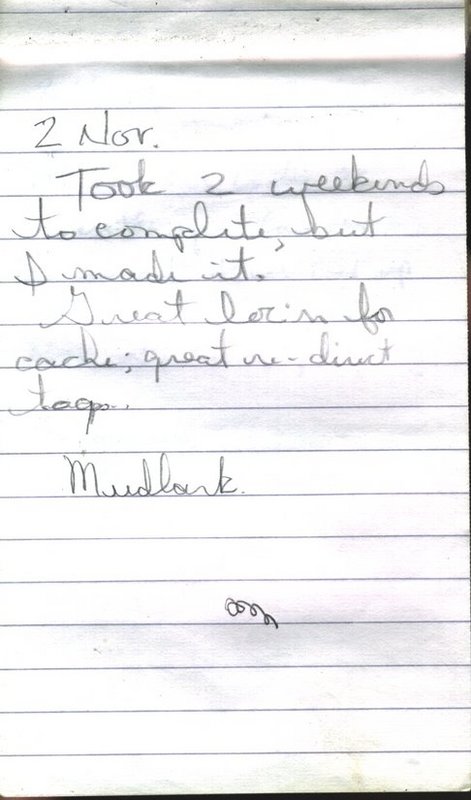 2 Nov.
Took 2 weekends
to complete, but
I made it.
Great loc'n for
cache; great re-direct
tags.
Mudlark.